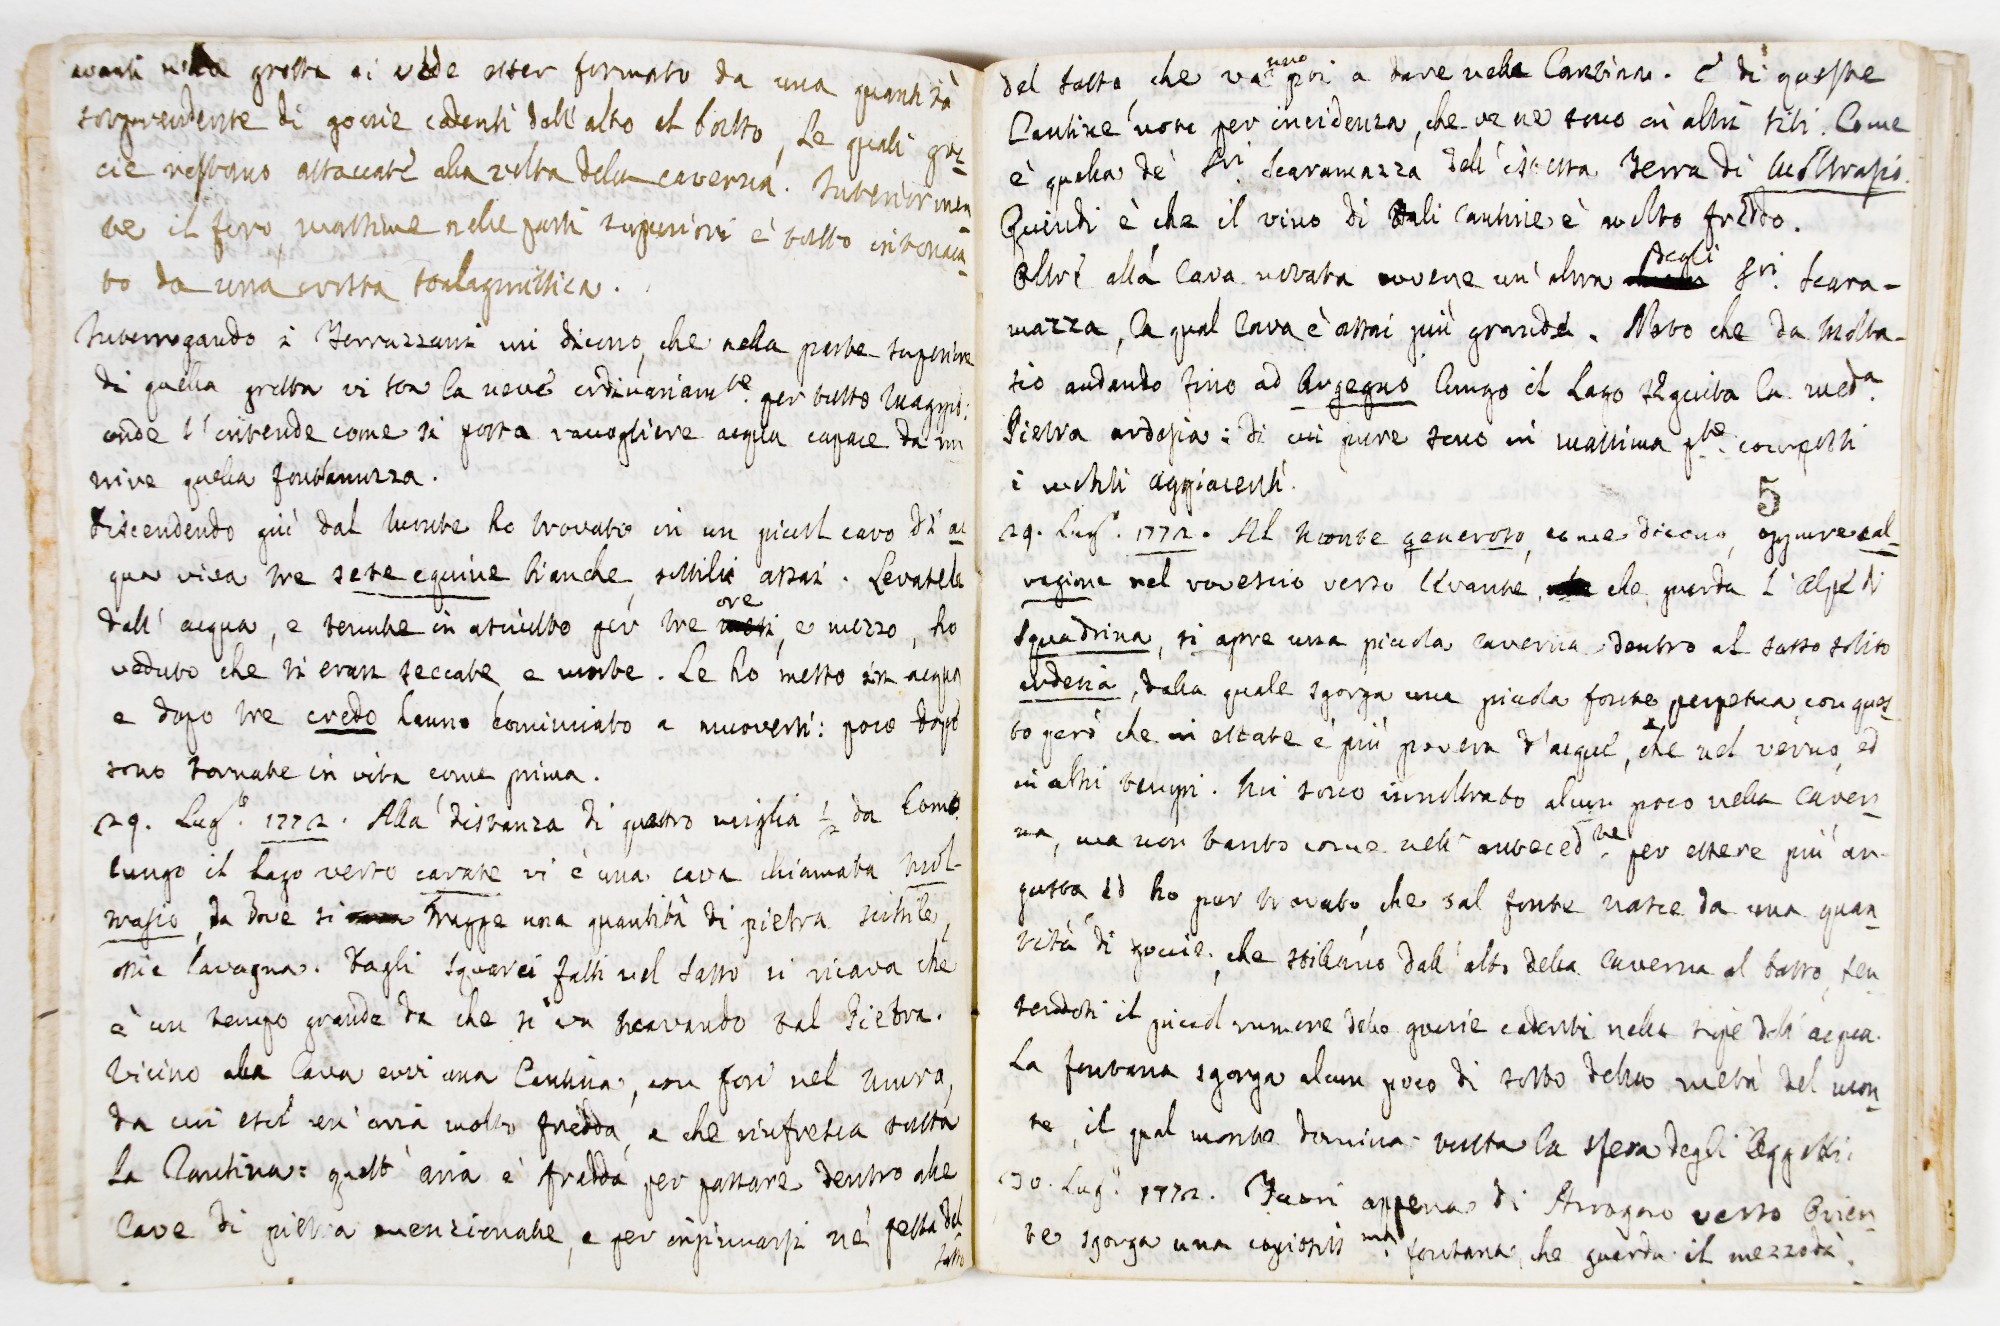 avanti nella grotta si vede esser formato da una quantità
sorprendente di goccie cadenti dall'alto al basso, Le quali goc-
cie restano attaccate alla volta della caverna. Interiormen-
te il foro, massime nelle parti superiori è tutto intonaca-
to da una crosta stalagmitica.
Interrogando i Terrazzani mi dicono, che nella parte superiore
di quella grotta vi sta la neve ordinariam.te per tutto Maggio:
onde s'intende come si possa raccogliere acqua capace da nu-
trire quella fontanuzza.
Discendendo giù dal Monte ho trovato in un piccol cavo d'ac
qua viva tre sete equine bianche, sottili assai. Levatele
dall'acqua, e tenute in asciutto per tre ore, e mezzo, ho
veduto che si eran seccate, e morte. Le ho messo in acqua
e dopo tre credo hanno cominciato a muoversi: poco dopo
sono tornate in vita come prima.
29. Lug.o 1772. Alla distanza di quattro miglia 1/2 da Como
lungo il Lago verso carate vi è una cava chiamata Mol-
trasio, da dove si tragge una quantità di pietra scissile,
ossia Lavagna. Dagli squarci fatti nel sasso si ricava che
è un tempo grande da che si va scavando tal Pietra.
Vicino alla Cava evvi una Cantina, con fori nel muro,
da cui esce un'aria molto fredda, e che rinfresca tutta
La Cantina: quest'aria è fredda per passare dentro alle
Cave di pietra menzionate, e per insinuarsi ne' fessi del
sasso
del sasso, che vanno poi a dare nella Cantina. E di queste
Cantine noto per incidenza, che ve ne sono in altri siti. Come
è quella de' Sri. Scaramazza dell'istessa Terra di Moltrasio.
Quindi è che il vino di tali Cantine è molto freddo.
Oltre alla Cava notata avvene un'altra degli Sri. Scara-
mazza, la qual Cava è assai più grande. Noto che da Moltra-
sio andando fino ad Argegno lungo il Lago seguita la med.a
Pietra ardesia: di cui pure sono in massima p.te composti
i monti aggiacenti.
5
29. Lug.o 1772. Al Monte generoso, come dicono, oppure cal-
vagione nel rovescio verso Levante, che guarda l'Alpe di
Squadrina, si apre una piccola caverna dentro al sasso solito
ardesia, dalla quale sgorga una piccola fonte perpetua, con ques-
to però che in estate è più povera d'acque, che nel verno, ed
in altri tempi. Mi sono innoltrato alcun poco nella Caver-
na, ma non tanto come nell'anteced.te per essere più an-
gusta ed ho pur trovato, che tal fonte nasce da una quan-
tità di goccie, che stillano dall'alto della Caverna al basso, sen-
tendosi il piccol rumore delle goccie cadenti nella superficie dell'acqua.
La fontana sgorga alcun poco di sotto della metà del mon-
te, il qual monte domina tutta la sfera degli Oggetti.
30. Lug.o 1772. Fuori appena di Arrogno verso Orien-
te sgorga una copiosissima fontana, che guarda il mezzodì.